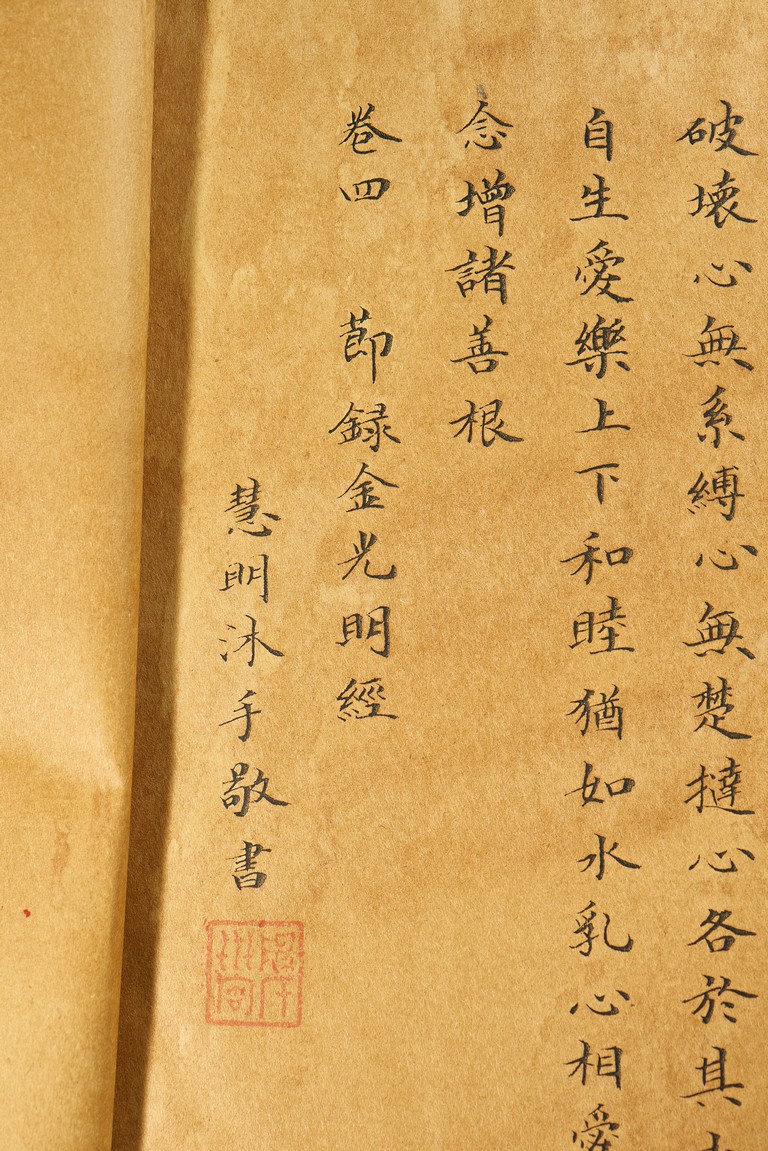 破壞心無系縛心無楚撻心各於其
自生愛樂上下和睦猶如水乳心相愛
念增諸善根
卷四 節録金光明經
慧明沐手敬書